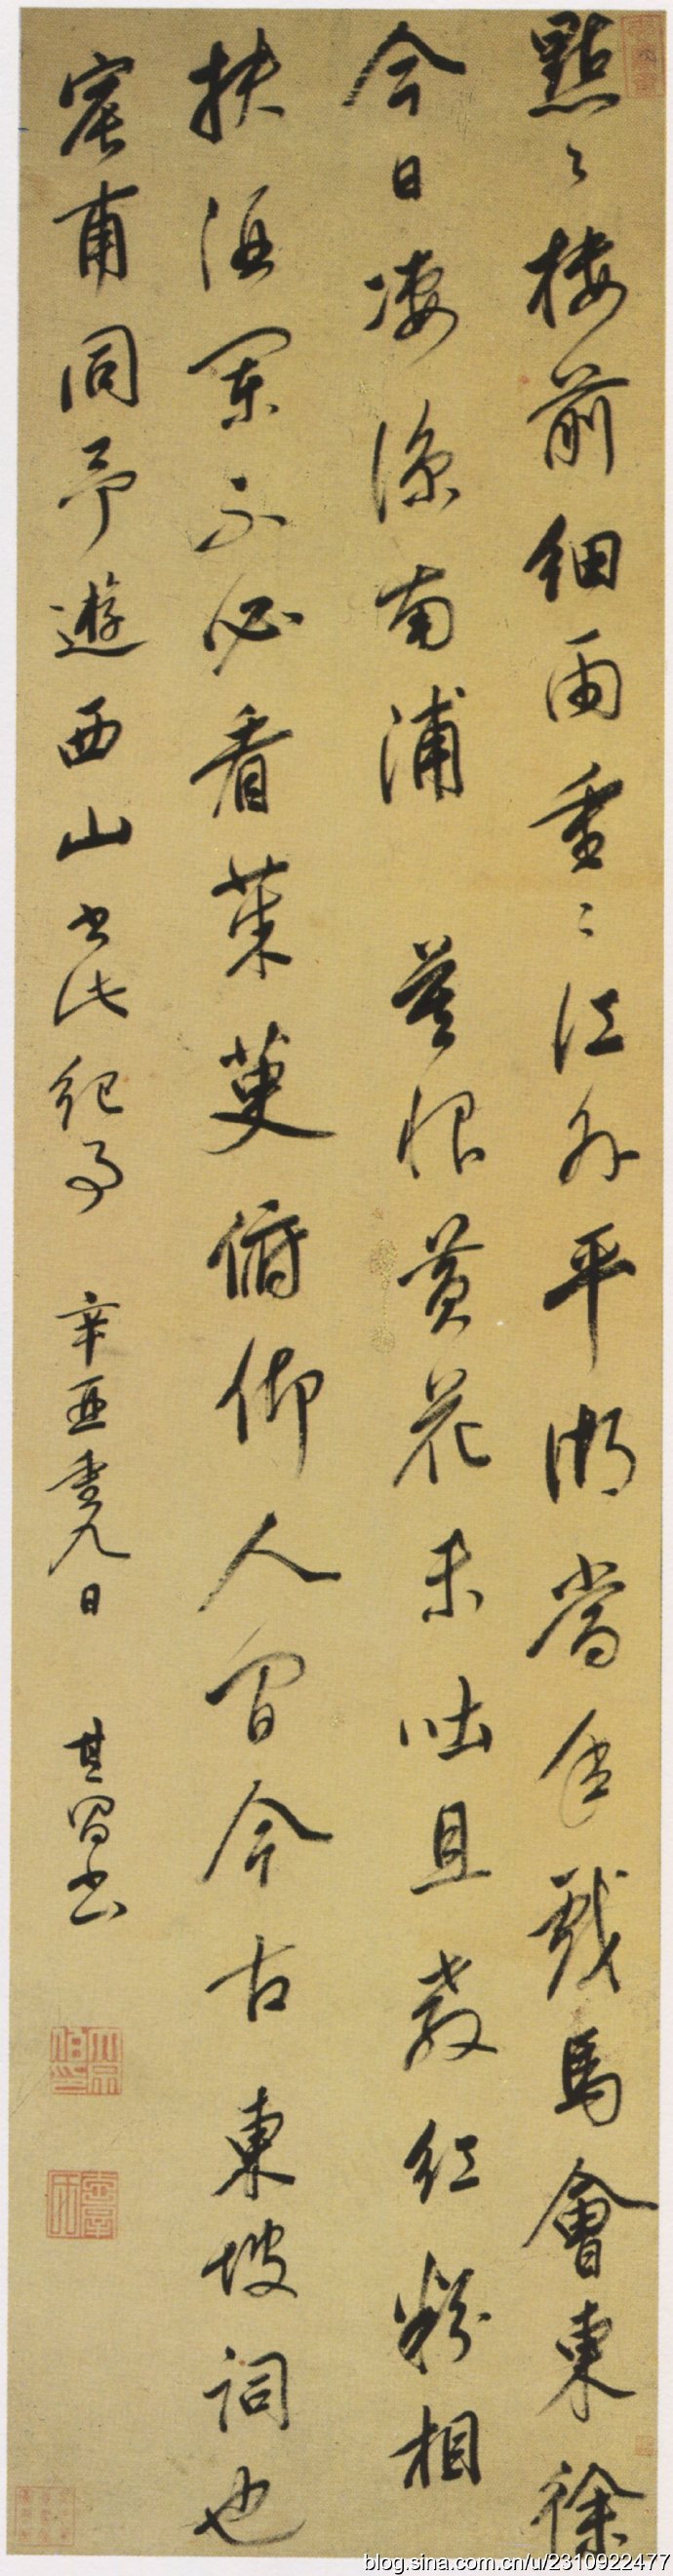 點〻樓前細雨重〻江外平湖當年戲馬會東徐
今日淒涼南浦 莫恨黃花未吐且教紅粉相
扶酒闌不必看茱萸俯仰人間今古東坡詞也
甫同予遊西山書此紀事 辛亥重九日 其昌書
blog.sina.com.cn/u/2310922477